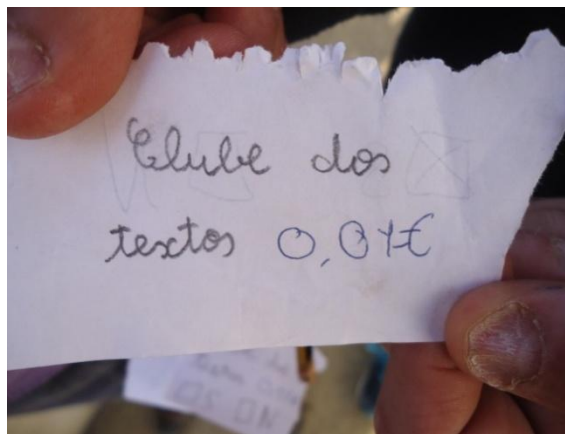 Clube dos
textos 0,01€